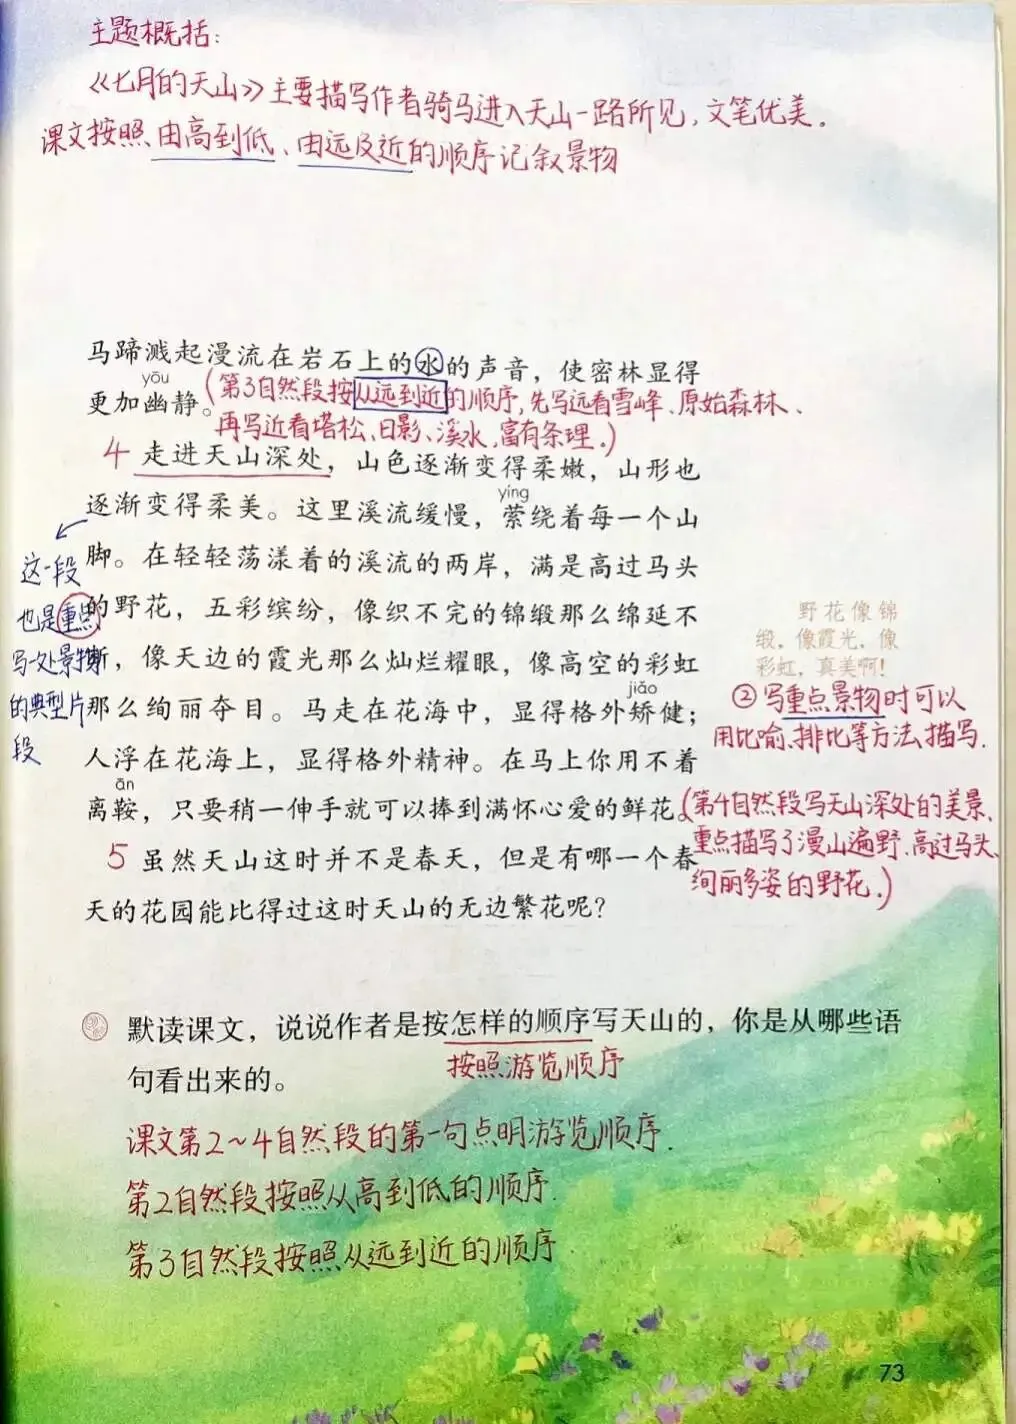 主题概括：
《七月的天山》主要描写作者骑马进入天山一路所见，文笔优美。
课文按照由高到低、由远及近的顺序记叙景物
马蹄溅起漫流在岩石上的水的声音，使密林显得
yōu
更加幽静。
(第3自然段按从远到近的顺序，先写远看雪峰、原始森林、
再写近看塔松、日影、溪水，富有条理。)
4 走进天山深处，山色逐渐变得柔嫩，山形也
yíng
逐渐变得柔美。这里溪流缓慢，萦绕着每一个山
脚。在轻轻荡漾着的溪流的两岸，满是高过马头
的野花，五彩缤纷，像织不完的锦缎那么绵延不
断，像天边的霞光那么灿烂耀眼，像高空的彩虹
jiǎo
那么绚丽夺目。马走在花海中，显得格外矫健；
人浮在花海上，显得格外精神。在马上你用不着
ān
离鞍，只要稍一伸手就可以捧到满怀心爱的鲜花。
5 虽然天山这时并不是春天，但是有哪一个春
天的花园能比得过这时天山的无边繁花呢？
这一段
也是重点
写一处景物
的典型片
段
野花像锦
缎，像霞光，像
彩虹，真美啊！
②写重点景物时可以
用比喻、排比等方法描写.
(第4自然段写天山深处的美景、
重点描写了漫山遍野、高过马头、
绚丽多姿的野花.)
默读课文，说说作者是按怎样的顺序写天山的，你是从哪些语
句看出来的。
按照游览顺序
课文第2～4自然段的第一句点明游览顺序.
第2自然段按照从高到低的顺序.
第3自然段按照从远到近的顺序.
73